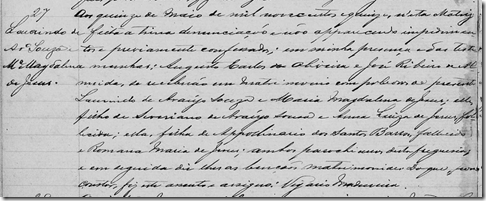 27 Aos quinze de Maio de mil novecentos e quinze, n'esta Matriz
Laurindo de feita a tima denunciação e não apparecendo impedimen
Ar.º Souza e tos e previamente confessados, em minha presença e das teste
M.ª Magdalena munhas: Augusto Carlos de Oliveira e José Ribeiro de Al
de Jesus. meida, se receberão em matrimonio com palavras de presente
Laurindo de Araujo Souza e Maria Magdalena de Jesus; elle,
filho de Severiano de Araujo Sousa e Anna Luiza de Jesus, fal
lecida; ella, filha de Appolinario dos Santos Barros, fallecido
e Romana Maria de Jesus; ambos parochianos desta freguezia
e em seguida dei lhes as bençãos matrimoniaes. Do que, para
constar, fiz este assento e assigno: Vigario Madureira.